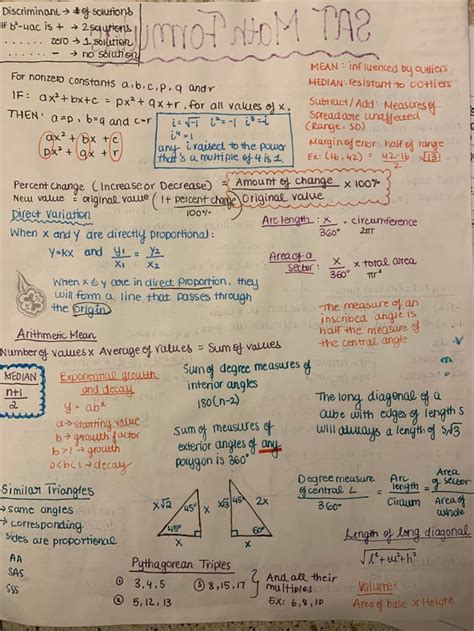 SAT Math Formu
Discriminant → # of solutions
IF b²-4ac is + → 2 solutions
" ..... zero → 1 solution
" ..... - → no solution
For nonzero constants a, b, c, p, q and r
IF: ax² + bx + c = px² + qx + r, for all values of x,
THEN: a=p, b=q and c=r
ax² + bx + c
px² + qx + r
i = √-1 i² = -1 i³ = -i
i⁴ = 1
any i raised to the power
that's a multiple of 4 is 1.
MEAN: influenced by outliers
MEDIAN: resistant to outliers
Subtract / Add: Measures of
Spread are unaffected
(Range, SD)
Margin of error: half of range
Ex: (16, 42) = 42-16 / 2 √13
Percent change (Increase or Decrease) = Amount of change / Original value x 100%
New value = original value (1 + percent change / 100%)
Direct Variation
When x and y are directly proportional:
y=kx and y₁/x₁ = y₂/x₂
When x & y are in direct proportion, they
will form a line that passes through
the origin
Arc length: x/360° · circumference
2πr
Area of a sector: x/360° x total area
πr²
The measure of an
inscribed angle is
half the measure of
the central angle
Arithmetic Mean
Number of values x Average of values = Sum of values
MEDIAN
n+1
2
Exponential growth
and decay
y = abˣ
a → starting value
b → growth factor
b > 1 → growth
0<b<1 → decay
Sum of degree measures of
interior angles
180(n-2)
Sum of measures of
exterior angles of any
polygon is 360°
The long diagonal of a
cube with edges of length s
will always a length of s√3
Similar Triangles
→ same angles
→ corresponding
sides are proportional
AA
SAS
SSS
x√2 45° x
45°
x
x√3 45° 2x
60°
x
Degree measure of central ∠ / 360° = Arc length / Circum = Area of sector / Area of whole
Length of long diagonal
√l² + w² + h²
Pythagorean Triples
① 3, 4, 5 ③ 8, 15, 17
② 5, 12, 13
And all their
multiples:
Ex: 6, 8, 10
Volume:
Area of base x Height